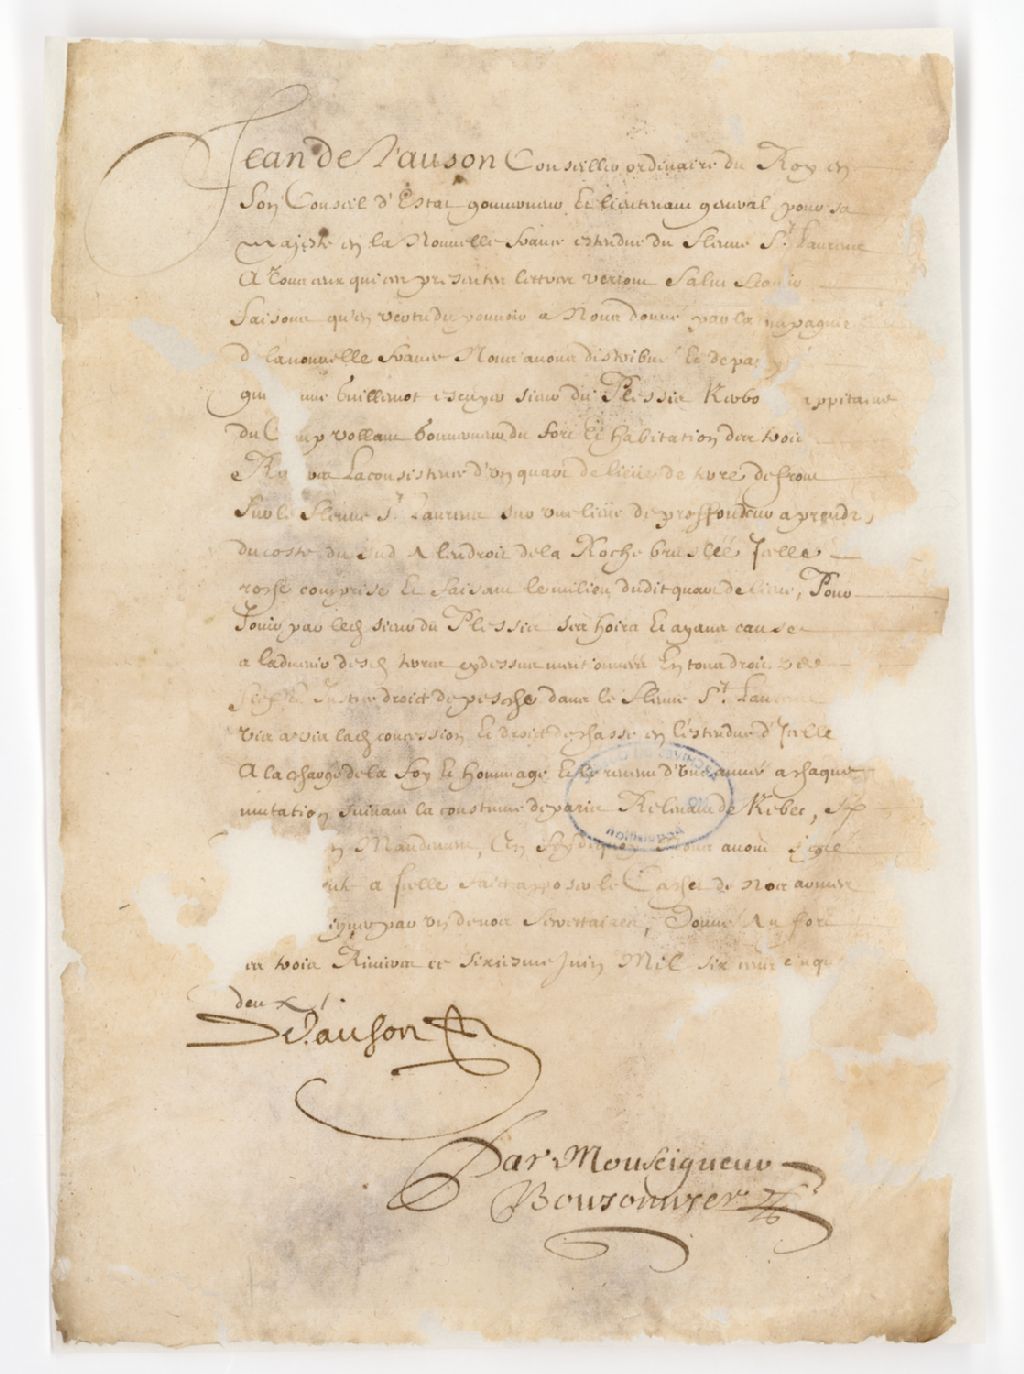 Jean de Lauson Conseiller ordinaire du Roy en
Son Conseil d'Estat gouuerneur Et lieutenant general pour sa
majeste en la Nouuelle france estendue du fleuue St. Laurens
A tous ceux qui ces presentes lettres verront Salut Scauoir
faisons qu'en vertu du pouuoir a Nous donné par la mpagnie
d lanouuelle france Nous auons distribué Et depa
gui ume Guillemot escuyer sieur du Plessis Kerbo appitaine
du C mp vollant Gouuerneur du fort Et habitation des trois
Ri res La consistence d'un quart de lieüe de terre de front
Sur le fleuue St. Laurens sur vne lieüe de proffondeur a prendre
du costé du sud A lendroit de la Roche bruslée, Jcelle
roche comprise Et faisant le milieu dudit quart de lieue, Pour
Jouir par ledt sieur du Plessis ses hoirs Et ayans cause
a ladvenir desdt terres cy dessus mentionnées En tous droits de
droict de pesche dans le fleuue St. Laurens
vis a vis ladt concession Et droict de chasse en l'estendue d'Jcelle
A la charge de la foy Et hommage Et le reuenu d'une année a chaque
mutation suiuant la coustume de paris Releuant de Kebec, Sy
n Mandement, En foy dequoy Nous auons signé
nte a Jcelle fait apposer le Cachet de Nos armes
signer par vn de nos Secretaires, Donné Au fort
es trois Riuieres ce sixiesme Juin Mil six cens cinqu
deux /.
De Lauson
Par Monseigneur
Rouxommer